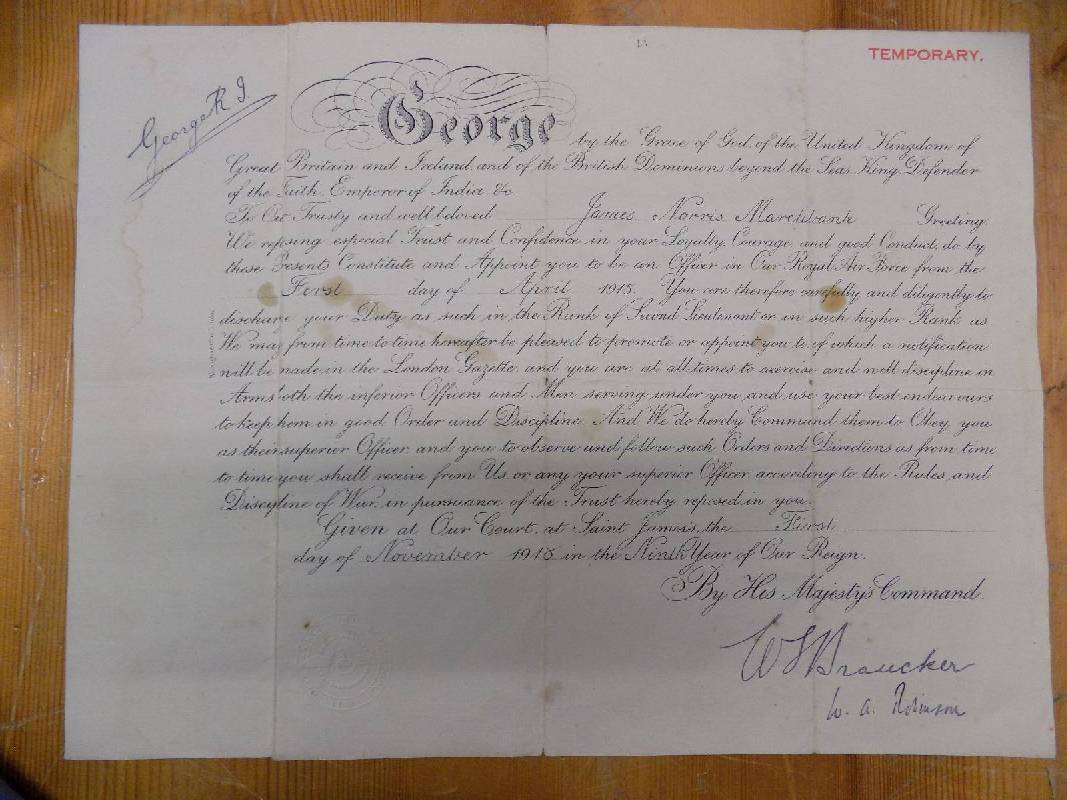 TEMPORARY.
George R I
George by the Grace of God, of the United Kingdom of
Great Britain and Ireland and of the British Dominions beyond the Seas King, Defender
of the Faith, Emperor of India &c
To Our Trusty and well beloved James Norris Marchbank Greeting
We reposing especial Trust and Confidence in your Loyalty, Courage, and good Conduct, do by
these Presents Constitute and Appoint you to be an Officer in Our Royal Air Force from the
First day of April 1918. You are therefore carefully and diligently to
discharge your Duty as such in the Rank of Second Lieutenant or in such higher Rank as
We may from time to time hereafter be pleased to promote or appoint you to, of which a notification
will be made in the London Gazette, and you are at all times to exercise and well discipline in
Arms both the inferior Officers and Men serving under you and use your best endeavours
to keep them in good Order and Discipline. And We do hereby Command them to Obey you
as their superior Officer and you to observe and follow such Orders and Directions as from time
to time you shall receive from Us, or any your superior Officer according to the Rules and
Discipline of War, in pursuance of the Trust hereby reposed in you.
Given at Our Court, at Saint James's, the First
day of November 1918 in the Ninth Year of Our Reign.
By His Majesty's Command.
W S Brancker
W. A. Robinson